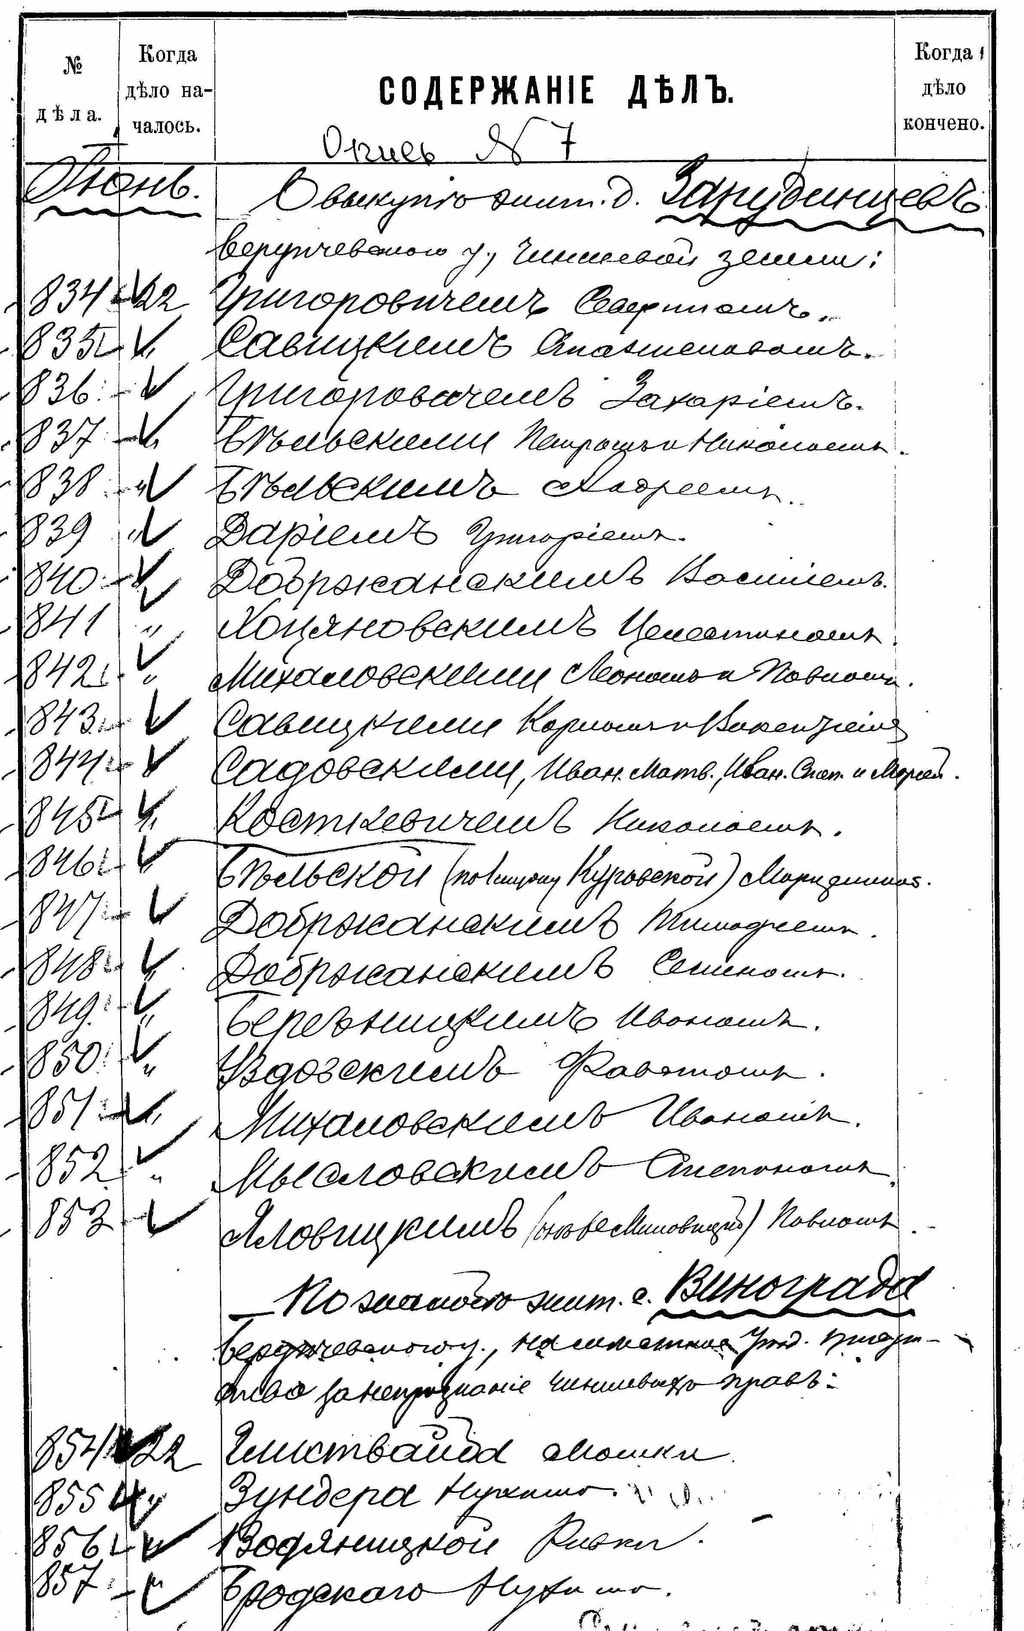 № дѣла.
Когда дѣло на-
чалось.
СОДЕРЖАНІЕ ДѢЛЪ.
Когда дѣло кончено.
Опись № 7
Іюнь. О выкупѣ жит. д. Зарудинцевъ
Бердичевского у., чиншевой земли:
834 22 Григоровичемъ Севериномъ.
835 " Савицкимъ
836 " Григоровичемъ Захаріемъ.
837 " Бѣльскими Петромъ и Николаемъ.
838 " Бѣльскимъ Андреемъ.
839 " Даріемъ Григоріемъ.
840 " Добржанскимъ Василіемъ.
841 " Хоцяновскимъ Целестиномъ.
842 " Михаловскими Леономъ и Павломъ.
843 " Савицкими Карломъ и Викентіемъ
844 " Садовскими, Иван. Матв., Иван. Степ. и
845 " Косткевичемъ Николаемъ.
846 " Бѣльской (по Куровской)
847 " Добржанскимъ Тимофеемъ.
848 " Добржанскимъ Семеномъ.
849 " Березницкимъ Иваномъ.
850 "
851 " Михаловскимъ Иваномъ.
852 " Мысловскимъ Степаномъ.
853 " Яловицкимъ Павломъ.
По жалобѣ жит. с. Винограда
Бердичевского у., на
за непризнаніе чиншевыхъ правъ:
854 22 Гликствайда Мошки.
855 " Зундера Нухима.
856 " Водяницкой Ривки.
857 " Бродскаго Нухима.